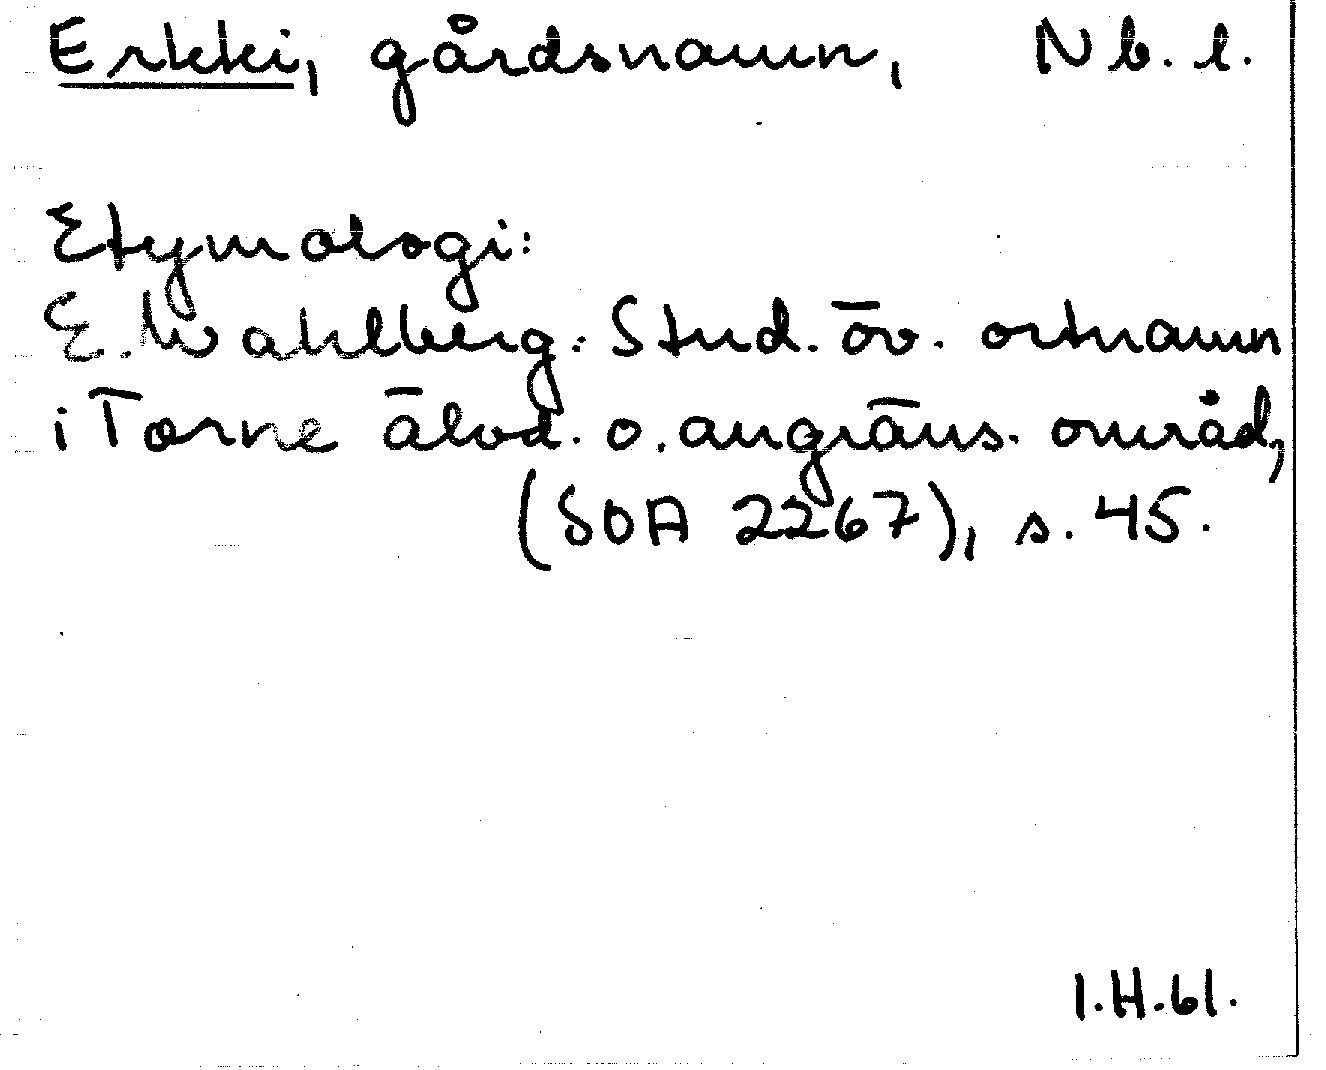 Erkki, gårdsnamn, Nb. l.
Etymologi:
E. Wahlberg: Stud. öv. ortnamn
i Torne älvd. o. angräns. områd,
(SOA 2267), s. 45.
I.H.61.